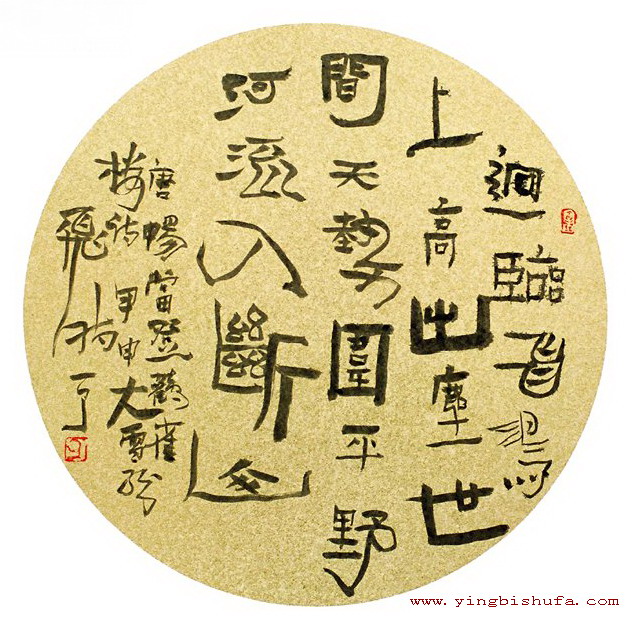 迥臨鳥
上高出塵世
間天勢圍平野
河流入斷山
唐暢當登鸛雀
樓詩甲申大雪紛
飛時
www.yingbishufa.com